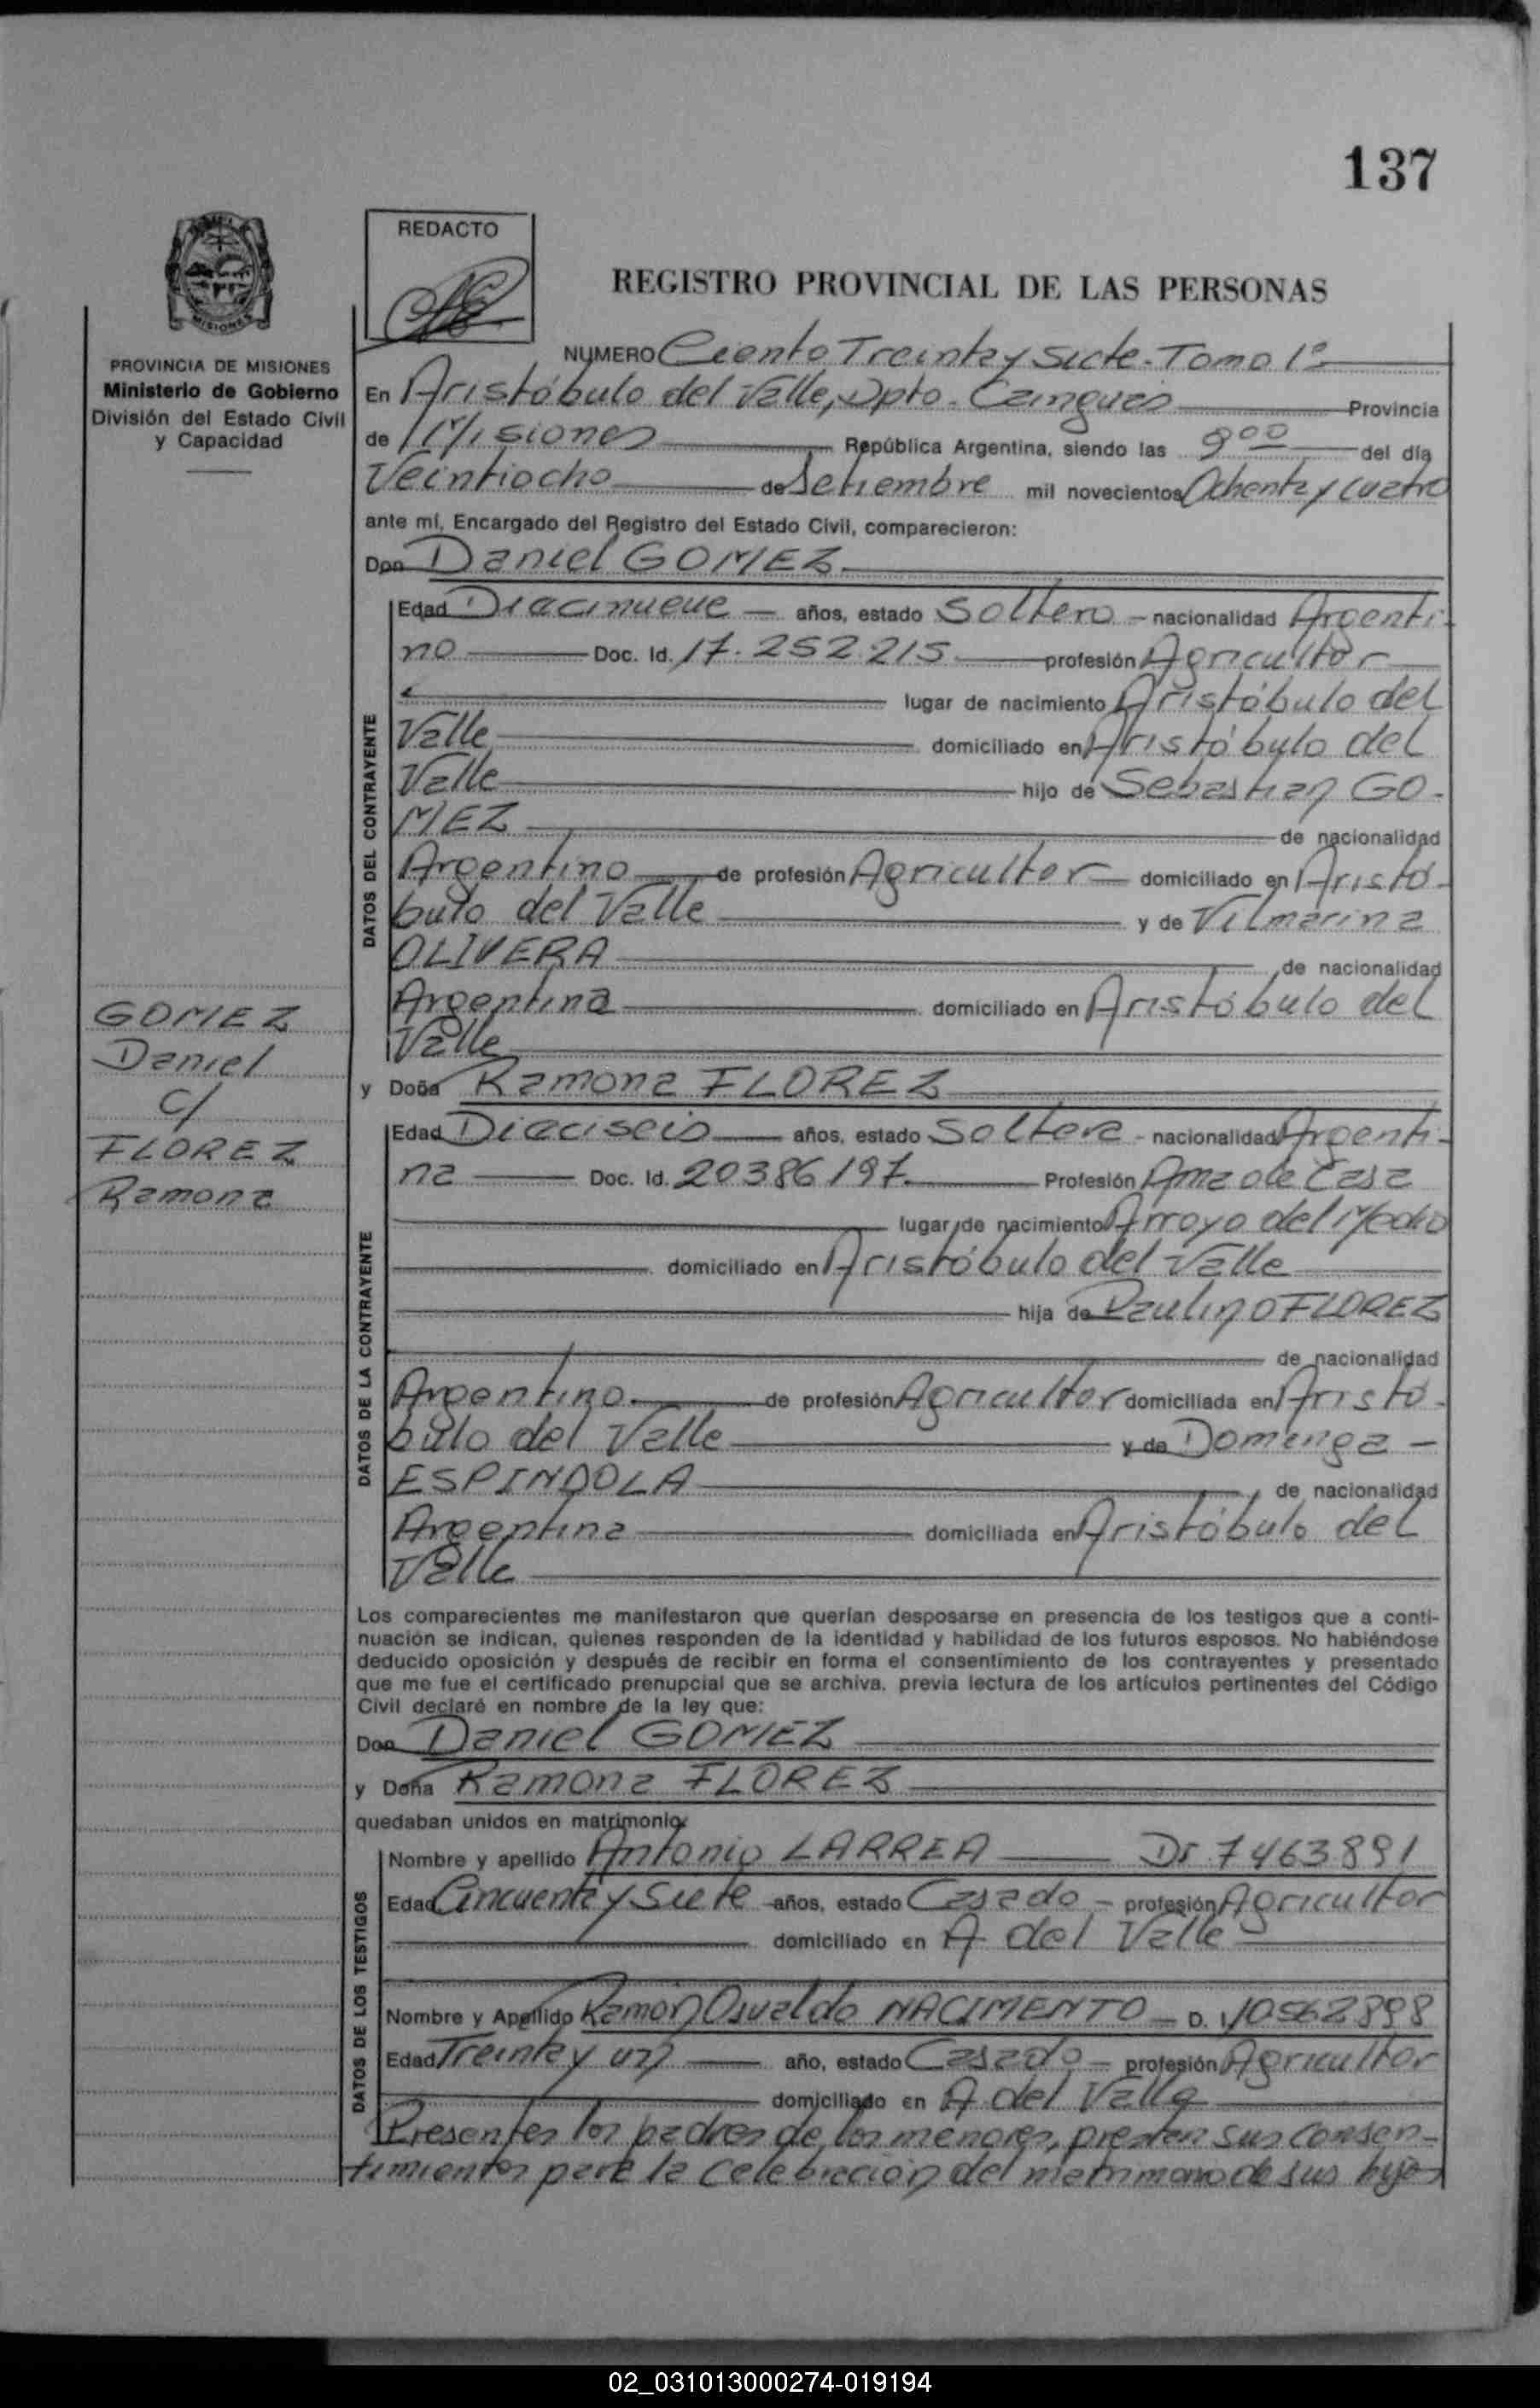 137
REDACTO
REGISTRO PROVINCIAL DE LAS PERSONAS
MISIONES
PROVINCIA DE MISIONES
Ministerio de Gobierno
División del Estado Civil
y Capacidad
NUMERO Ciento Treinta y Siete - Tomo 1º
En Aristóbulo del Valle, Dpto. Cainguás Provincia
de Misiones República Argentina, siendo las 9 00 del día
Veintiocho de Setiembre mil novecientos Ochenta y cuatro
ante mí, Encargado del Registro del Estado Civil, comparecieron:
Don Daniel GOMEZ
DATOS DEL CONTRAYENTE
Edad Diecinueve años, estado Soltero - nacionalidad Argenti-
no Doc. Id. 17.252.215 profesión Agricultor
lugar de nacimiento Aristóbulo del
Valle domiciliado en Aristóbulo del
Valle hijo de Sebastian GO-
MEZ de nacionalidad
Argentino de profesión Agricultor domiciliado en Aristó-
bulo del Valle y de Vilmarina
OLIVERA de nacionalidad
Argentina domiciliado en Aristóbulo del
Valle
GOMEZ
Daniel
c/
FLOREZ
Ramona
y Doña Ramona FLOREZ
DATOS DE LA CONTRAYENTE
Edad Dieciseis años, estado Soltera - nacionalidad Argenti-
na Doc. Id. 20386197. Profesión Ama de Casa
lugar de nacimiento Arroyo del Medio
domiciliado en Aristóbulo del Valle
hija de Paulino FLOREZ
de nacionalidad
Argentino de profesión Agricultor domiciliada en Aristó-
bulo del Valle y de Domenga -
ESPINDOLA de nacionalidad
Argentina domiciliada en Aristóbulo del
Valle
Los comparecientes me manifestaron que querían desposarse en presencia de los testigos que a conti-
nuación se indican, quienes responden de la identidad y habilidad de los futuros esposos. No habiéndose
deducido oposición y después de recibir en forma el consentimiento de los contrayentes y presentado
que me fue el certificado prenupcial que se archiva, previa lectura de los artículos pertinentes del Código
Civil declaré en nombre de la ley que:
Don Daniel GOMEZ
y Doña Ramona FLOREZ
quedaban unidos en matrimonio
DATOS DE LOS TESTIGOS
Nombre y apellido Antonio LARREA DI 7463891
Edad Cincuenta y Siete años, estado Casado - profesión Agricultor
domiciliado en A del Valle
Nombre y Apellido Ramón Osvaldo NACIMENTO D. I. 10562898
Edad Treinta y un año, estado Casado - profesión Agricultor
domiciliado en A. del Valle
Presentes los padres de los menores, prestan sus consen-
timientos para la celebración del matrimonio de sus hijos
02_031013000274-019194